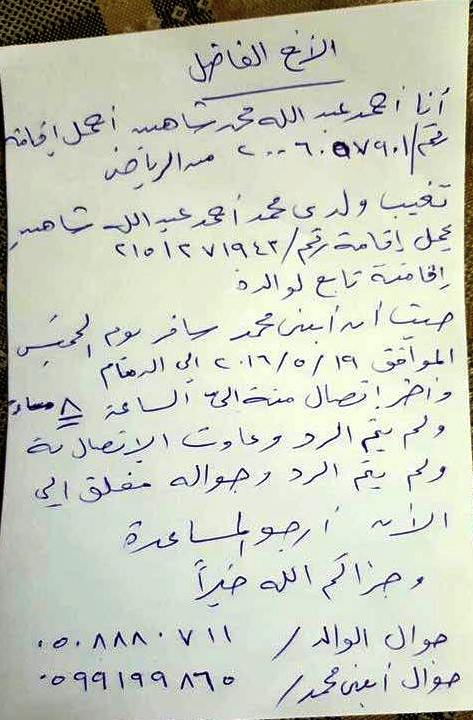 الأخ الفاضل
أنا أحمد عبد الله محمد شاهين أحمل إقامة
رقم/ ٢٠٠٦٠٥٧٩٠١ من الرياض
تغيب ولدى محمد أحمد عبد الله شاهين
يحمل إقامة رقم/ ٢١٥١٢٧١٩٤٢
إقامتة تابع لوالدة
حيث أن أبنى محمد سافر يوم الخميس
الموافق ١٩/٥/٢٠١٦ إلي الدمام
وأخر إتصال منة الي الساعة ٨ مساءً
ولم يتم الرد وعاوت الإتصال بة
ولم يتم الرد وجواله مغلق الي
الأن أرجو المساعدة
وجزاكم الله خيراً
جوال الوالد/ ٠٥٠٨٨٨٠٧١١
جوال أبنى محمد/ ٠٥٩٩١٩٩٨٦٥